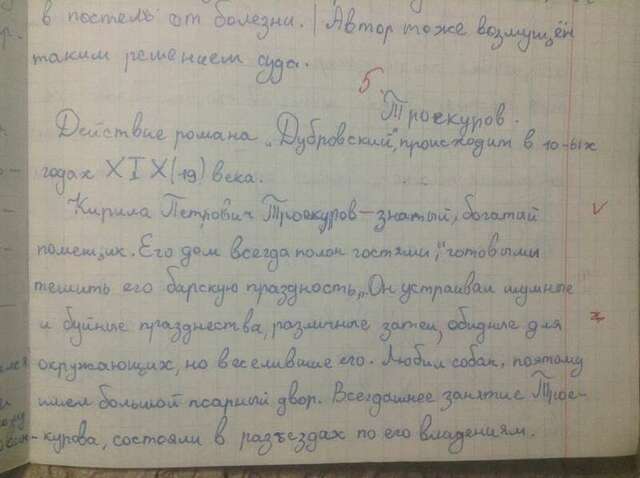 в постель от болезни. | Автор тоже возмущён
таким решением суда.
5.
Троекуров.
Действие романа „Дубровский", происходит в 10-ых
годах XIX (19) века.
Кирила Петрович Троекуров – знатый, богатый
помещик. Его дом всегда полон гостями, „готовыми
тешить его барскую праздность„. Он устраивал шумные
и буйные празднества, различные затеи, обидные для
окружающих, но веселившие его. Любил собак, поэтому
имел большой псарный двор. Всегдашнее занятие Трое-
курова, состояли в разъездах по его владениям.